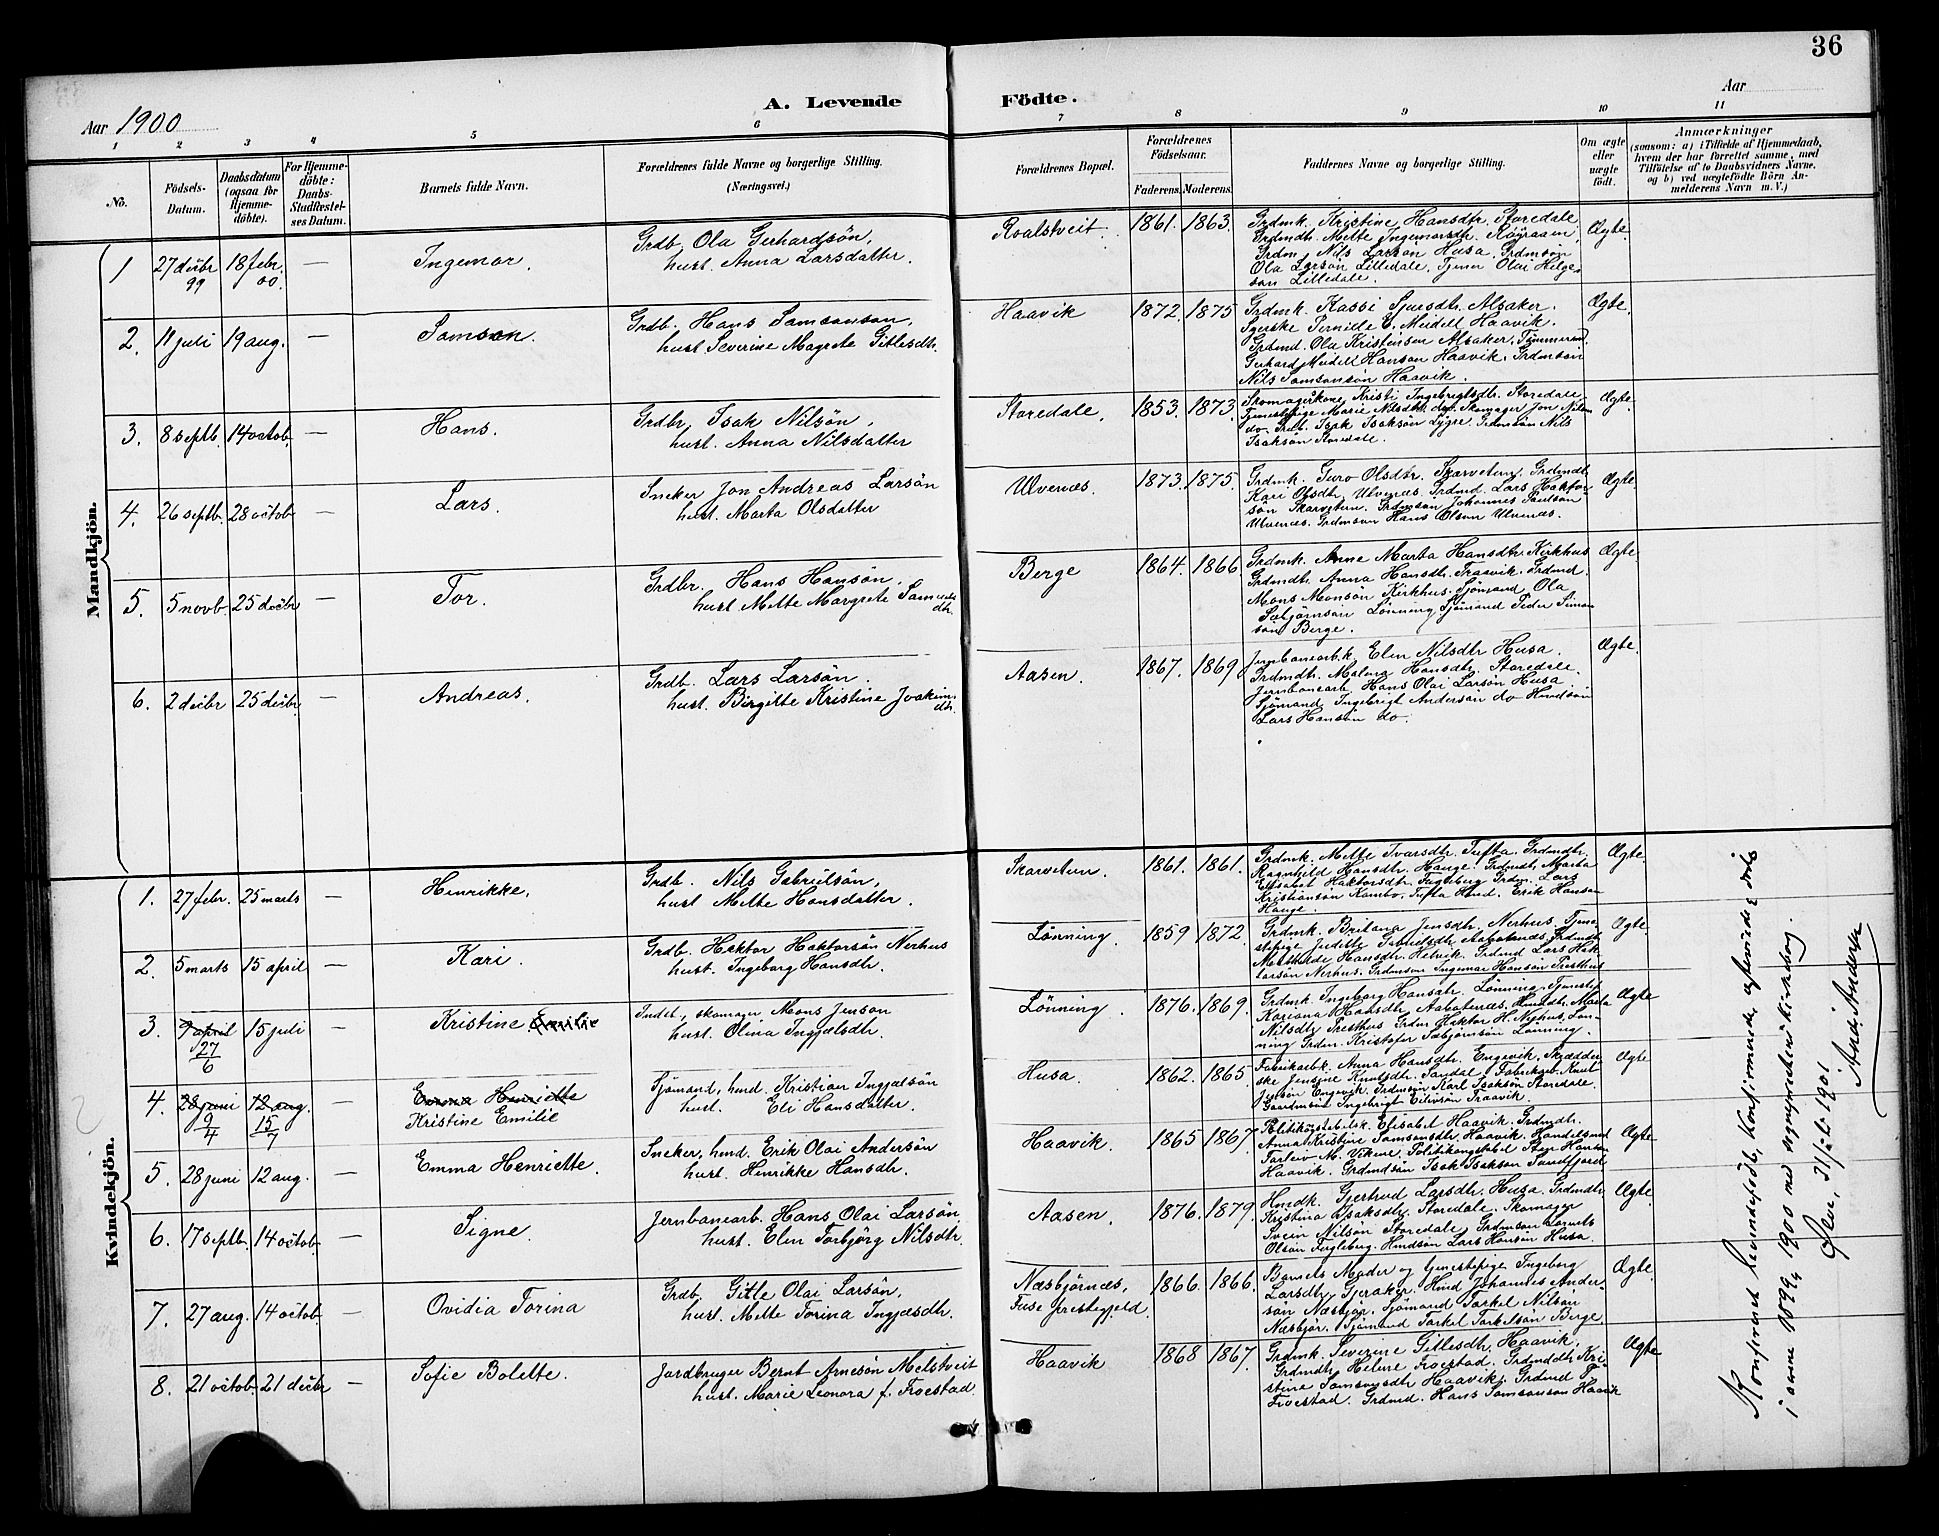 36
A. Levende Födte.
Aar 1900
Aar
1 2 3 4 5 6 7 8 9 10 11
No.
Födsels-
Datum.
Daabsdatum
(ogsaa for
Hjemme-
döbte).
For Hjemme-
döbte:
Daabs-
Stadfæstel-
ses Datum.
Barnets fulde Navn.
Forældrenes fulde Navne og borgerlige Stilling.
(Næringsvei.)
Forældrenes Bopæl.
Forældrenes
Födselsaar.
Faderens. Moderens.
Faddernes Navne og borgerlige Stilling.
Om ægte
eller
uægte
født.
Anmærkninger
(saasom: a) i Tilfælde af Hjemmedaab,
hvem der har forrettet samme, med
Tilföielse af to Daabsvidners Navne,
og b) ved uægtefödte Börn An-
melderens Navn m. V.)
Mandkjön.
1 27 decbr 99 18 febr. 00. — Ingemar.
Grdb. Ola Gerhardsön,
hust. Anna Larsdatter.
Roalstveit. 1861. 1863.
Grdmk. Kristine Hansdtr. Storedale
Grdmdtr. Mette Ingemarsdtr. Röyraaen,
Grdm. Nils Larsön Husa. Grdmsön
Ola Larsön Lilledale. Tjener Olai Helge-
sön Lilledale.
Ægte.
2. 11 juli 19 aug. — Samson.
Grdb. Hans Samsonsön,
hust. Severine Magrete Gitlesdtr.
Haavik 1872. 1875
Grdmk. Kassi Sjursdtr. Alsaker.
Syerske Pernille C. Meidell Haavik.
Grdmd. Ola Kristensen Alsaker. Tömmermd
Gerhard Meidell Hanson Haavik. Grdmsön
Nils Samsonsön Haavik.
Ægte.
3. 8 septb. 14 octob. — Hans.
Grdbr. Isak Nilsön,
hust. Anna Nilsdatter
Storedale. 1853. 1873.
Skomagerkone Kristi Ingebrigtsdtr. Storedale,
Tjenestepige Marie Nilsdtr. do. Skomager Jon Nilson
do. Grdb. Isak Isaksön Lygre. Grdmsön Nils
Isaksön Storedale.
Ægte.
4. 26 septb. 28 octob — Lars.
Sneker Jon Andreas Larsön
hust. Marta Olsdatter
Ulvenæs. 1873. 1875.
Grdmk. Guro Olsdtr. Skarvetun, Grdmdtr
Kari Olsdtr. Ulvenæs. Grdmd. Lars Haktor-
sön Skarvetun. Grdmsön Johannes Paulsön
Ulvenæs. Grdmsön Hans Olson Ulvenæs.
Ægte
5. 5 novb. 25 decbr — Tor.
Grdbr. Hans Hansön.
hust. Mette Margrete Samuels
dtr.
Berge 1864. 1866.
Grdmk. Anne Marta Hansdtr. Kirkhus
Grdmdtr. Anna Hansdtr. Traavik. Grdmd.
Mons Monsön Kirkhus. Sjömand Ola
Sæbjörnsön Lönning Sjömand Peder Simon
sön Berge.
Ægte
6. 2 decbr 25 decbr. — Andreas.
Grdb. Lars Larsön.
hust. Birgitte Kristine Joakims
dtr.
Aasen. 1867. 1869
Jernbanearb.k. Elen Nilsdtr Husa.
Grdmdtr. Malena Hansdtr. Storedale.
Jernbanearb Hans Olai Larsön Husa
Sjömand Ingebrigt Andersön do Hmdsön
Lars Hansön do.
Ægte.
Kvindekjön.
1. 27 febr. 25 marts — Henrikke.
Grdb. Nils Gabrielsön,
hust Mette Hansdatter.
Skarvetun. 1861. 1861.
Grdmk. Mette Ivarsdtr. Tufta. Grdmdtr.
Ragnhild Hansdtr. Hauge. Grdmdtr. Marta
Elisabet Haktorsdtr. Fugleberg Grdm. Lars
Kristiansön Kambo, Tufta Hmd. Erik Hanson
Hauge.
Ægte.
2. 5 marts 15 april — Kari.
Grdb. Haktor Haktorsön Nerhus
hust. Ingeborg Hansdtr.
Lönning. 1859 1872.
Grdmk. Britana Jensdtr Nerhus. Tjene
stepige Juditte Gabrielsdtr. Aabotenæs. Grdmdtr
Mathilde Hansdtr. Helvik. Grdmd Lars Hak-
torsön Nerhus. Grdmsön Ingemar Hansön Presthus
Ægte.
3. 9 april 27/6 15 juli — Kristine Emilie
Inderst, skomager Mons Jenson
hust. Olina Ingjælsdtr.
Lönning 1876. 1869.
Grdmk. Ingeborg Hansdtr. Lönning. Tjenestep
Kariana Hansdtr Aabotenæs. Hmdtr. Marta
Nilsdtr. Presthus Grdm. Haktor H. Nerhus, Lön-
ning Grdm. Kristofer Sæbjörnsön Lönning.
Ægte
4. 28 juni 9/4 12 aug. 15/7 Emma Henriette
Kristine Emilie
Sjömand, hmd. Kristian Ingjælsön
hust. Eli Hansdatter.
Husa. 1862. 1865
Fabrikarbk. Anna Hansdtr. Engevik. Skrædder-
ske Jensine Knutsdtr. Sandal, Fabrikarb. Knut
Jensön Engevik. Grdmsön Karl Isaksön Storedale.
Gaardmsön Ingebrigt Eilivsön Traavik.
Ægte
5. 28 juni 12 aug. — Emma Henriette.
Sneker, hmd. Erik Olai Andersön
hust. Henrikke Hansdtr.
Haavik. 1865 1867.
Politikonstabelsk. Elisabet Haavik. Grdmdtr.
Anna Kristine Samsonsdtr. Haavik. Handelsmd
Torleiv M. Vikene. Politikonstabel Sten Hanson
Haavik. Grdmdsön Isak Isakson Sandfjord
Ægte
6. 17 septb. 14 octob — Signe.
Jernbanearb. Hans Olai Larsön
hust. Elen Torbjörg Nilsdtr.
Aasen. 1876. 1879.
Hmdk. Gjertrud Larsdtr. Husa. Grdmdtr
Kristina Isaksdtr. Storedale. Skomager
Svein Nilsön Storedale. Grdmson Kornels
Olsön Fugleberg. Hmdsön Lars Hansön Husa.
Ægte.
7. 27 aug. 14 octob. — Ovidia Torina
Grdb. Gitle Olai Larsön,
hust. Mette Torina Ingjælsdtr.
Næsbjörnæs,
Fuse prestegjeld. 1866. 1866.
Barnets Moder og tjenestepige Ingeborg
Larsdtr. Gjeraker. Hmd Johannes Ander-
sön Næsbjör. Sjömand Torkel Nilsön
Næsbjör. Sjömand Torkel Torkelsön Berge
Ægte.
8. 21 octob. 21 decbr — Sofie Bolette.
Jordbruger Bernt Arnesön Melstveit
hust. Marie Leonora f. Froestad.
Haavik 1868 1867.
Grdmk. Severine Gitlesdtr, Haavik.
Grdmdtr. Helene Froestad. Grdmdtr Kri-
stine Samsonsdtr Haavik. Grdmd
Froestad. Grdmd. Hans Samsonson Haavik
Ægte
Konfereret levendefödte, konfirmerede, ægteviede, döde
i aarene 1899 og 1900 med sogneprestens kirkebog.
Ölen, 31/ 1901 And. Andersen